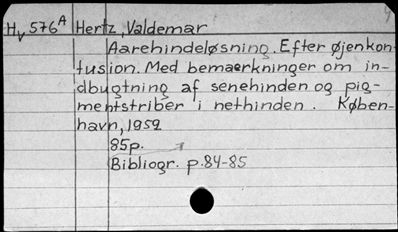 Hv 576A Hertz, Valdemar
Aarehindeløsning. Efter øjenkon-
tusion. Med bemaerkninger om in-
dbugtning af senehinden og pig-
mentstriber i nethinden. Køben-
havn, 1952
85p.
Bibliogr. p.84-85